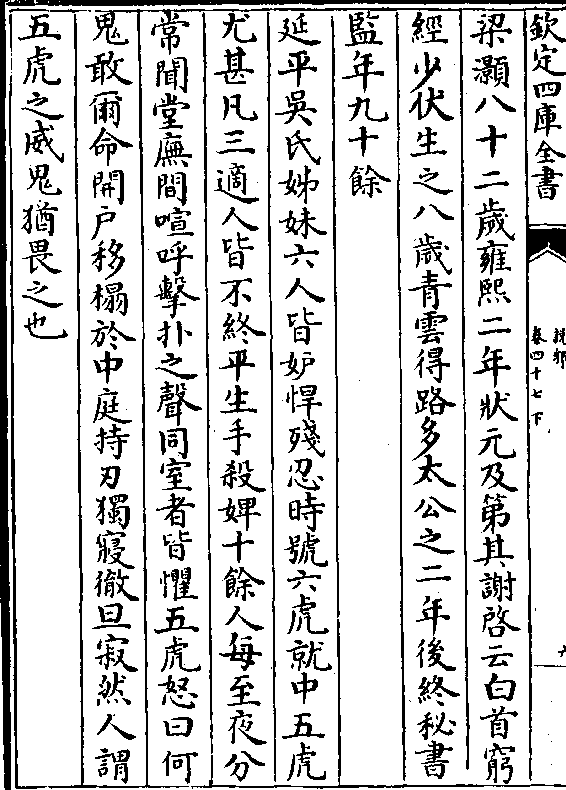 欽定四庫全書
說郛
卷四十七下
梁灝八十二歲雍熙二年狀元及第其謝啓云白首窮
經少伏生之八歲青雲得路多太公之二年後終秘書
監年九十餘
延平吳氏姊妹六人皆妒悍殘忍時號六虎就中五虎
尤甚凡三適人皆不終平生手殺婢十餘人每至夜分
常聞堂廡間喧呼擊扑之聲同室者皆懼五虎怒曰何
鬼敢爾命開户移榻於中庭持刃獨寢徹旦寂然人謂
五虎之威鬼猶畏之也